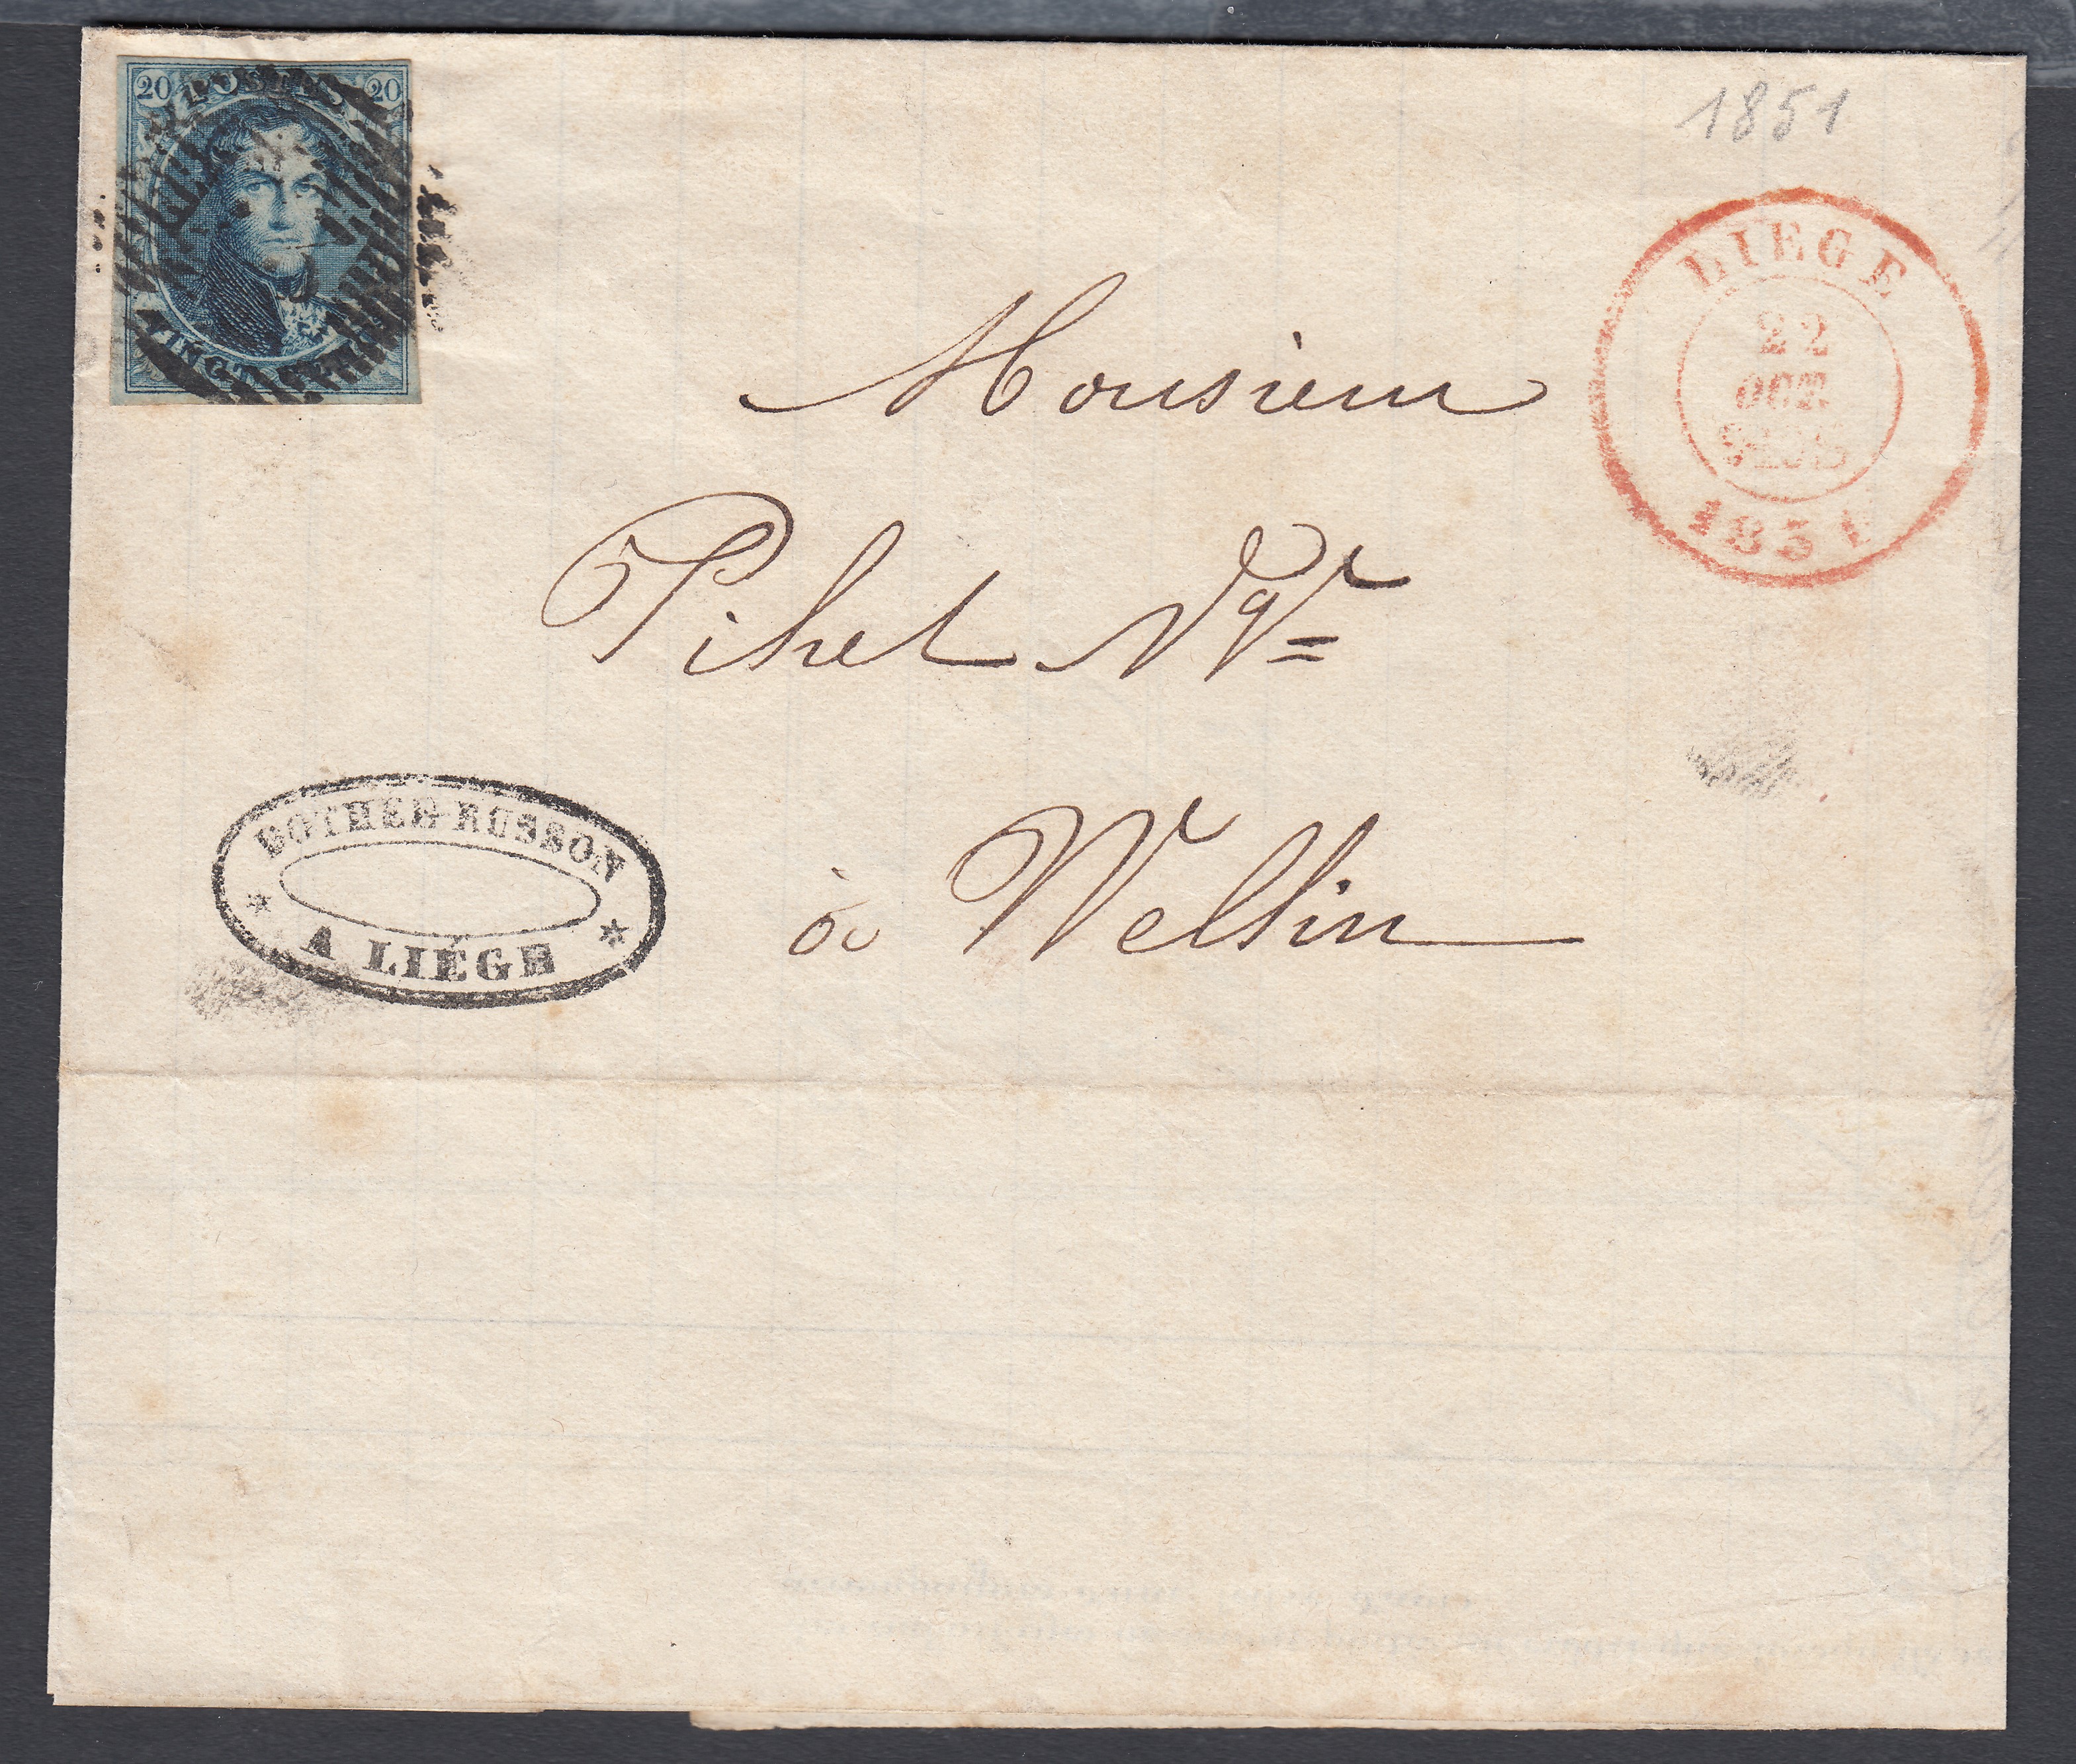 20 POSTES 20
VINGT CENTS
1851
LIEGE
22
OCT.
1851
Monsieur
Pihet Ngt
à Wellin
BOTHER-RUSSON
A LIÉGE